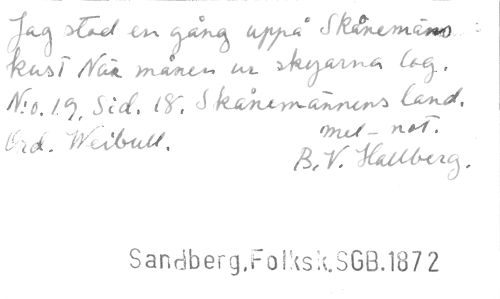 Jag stod en gång uppå Skånemäns
kust När månen ur skyarna log.
N:o. 19, Sid. 18. Skånemännens land.
Ord. Weibull. mel-not.
B. V. Hallberg.
Sandberg.Folksk.SGB.1872